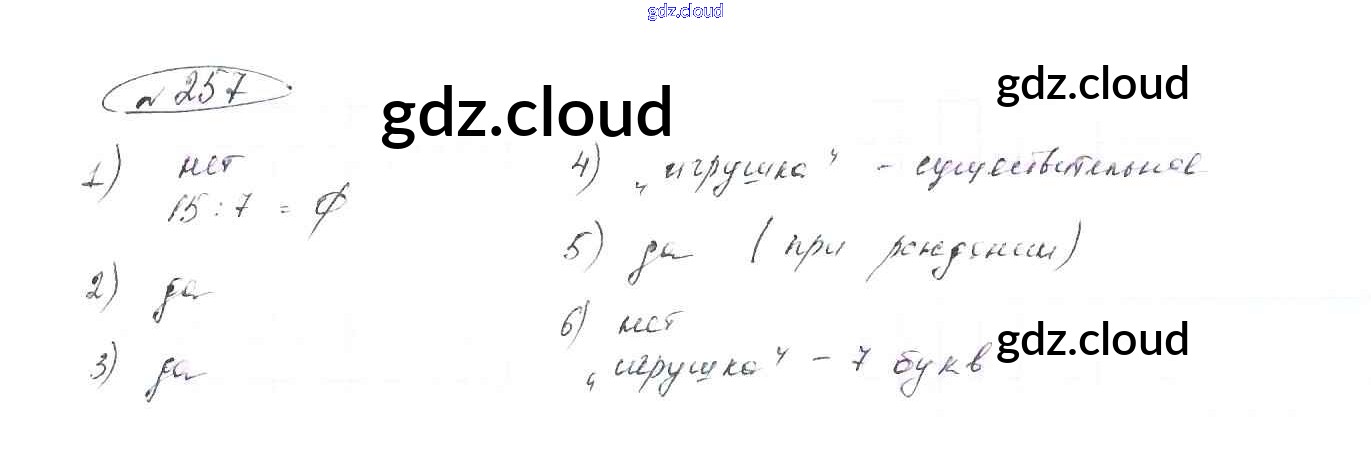 gdz.cloud
№ 257
gdz.cloud
gdz.cloud
1) нет
15 : 7 = ∅
2) да
3) да
4) „игрушка“ - существительное
5) да (при рождении)
6) нет
„игрушка“ - 7 букв
gdz.cloud